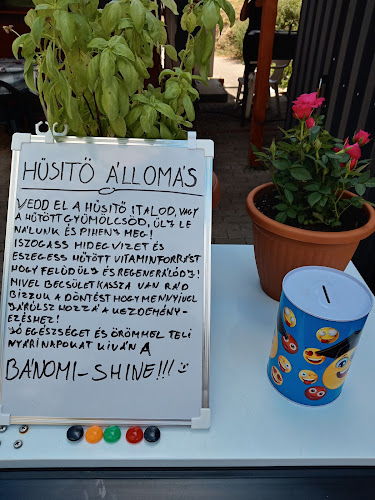 HŰSITŐ ÁLLOMÁS
VEDD EL A HŰSITŐ ITALOD, VAGY
A HŰTÖTT GYÜMÖLCSÖD, ÜLJ LE
NÁLUNK ÉS PIHENJ MEG!
ISZOGASS HIDEG VIZET ÉS
ESZEGESS HŰTÖTT VITAMINFORRÁST
HOGY FELÜDÜLJ ÉS REGENERÁLÓDJ!
MIVEL BECSÜLETKASSZA VAN RÁD
BIZZUK A DÖNTÉST HOGY MENNYIVEL
JÁRULSZ HOZZÁ A KEZDEMÉNY-
EZÉSHEZ!
JÓ EGÉSZSÉGET ÉS ÖRÖMMEL TELI
NYÁRI NAPOKAT KIVÁN A
BÁNOMI-SHINE!!!